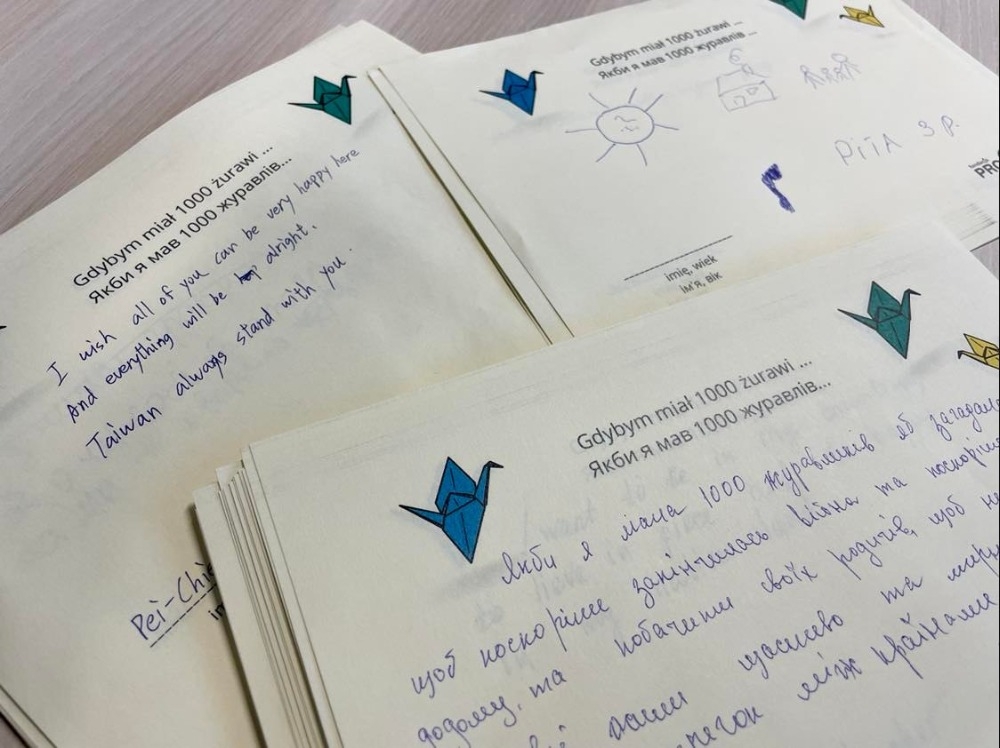 Gdybym miał 1000 żurawi ...
Якби я мав 1000 журавлів...
I wish all of you can be very happy here
And everything will be alright.
Taiwan always stand with you.
Pei-Chi
Gdybym miał 1000 żurawi ...
Якби я мав 1000 журавлів ...
РІЇА 3 р.
PRO
imię, wiek
ім'я, вік
Gdybym miał 1000 żurawi ...
Якби я мав 1000 журавлів...
Якби я мала 1000 журавликів яб загадала
щоб поскоріше закінчилась війна та поскоріш
додому, та побачити своїх родичів, щоб
щасливо та
між країнами